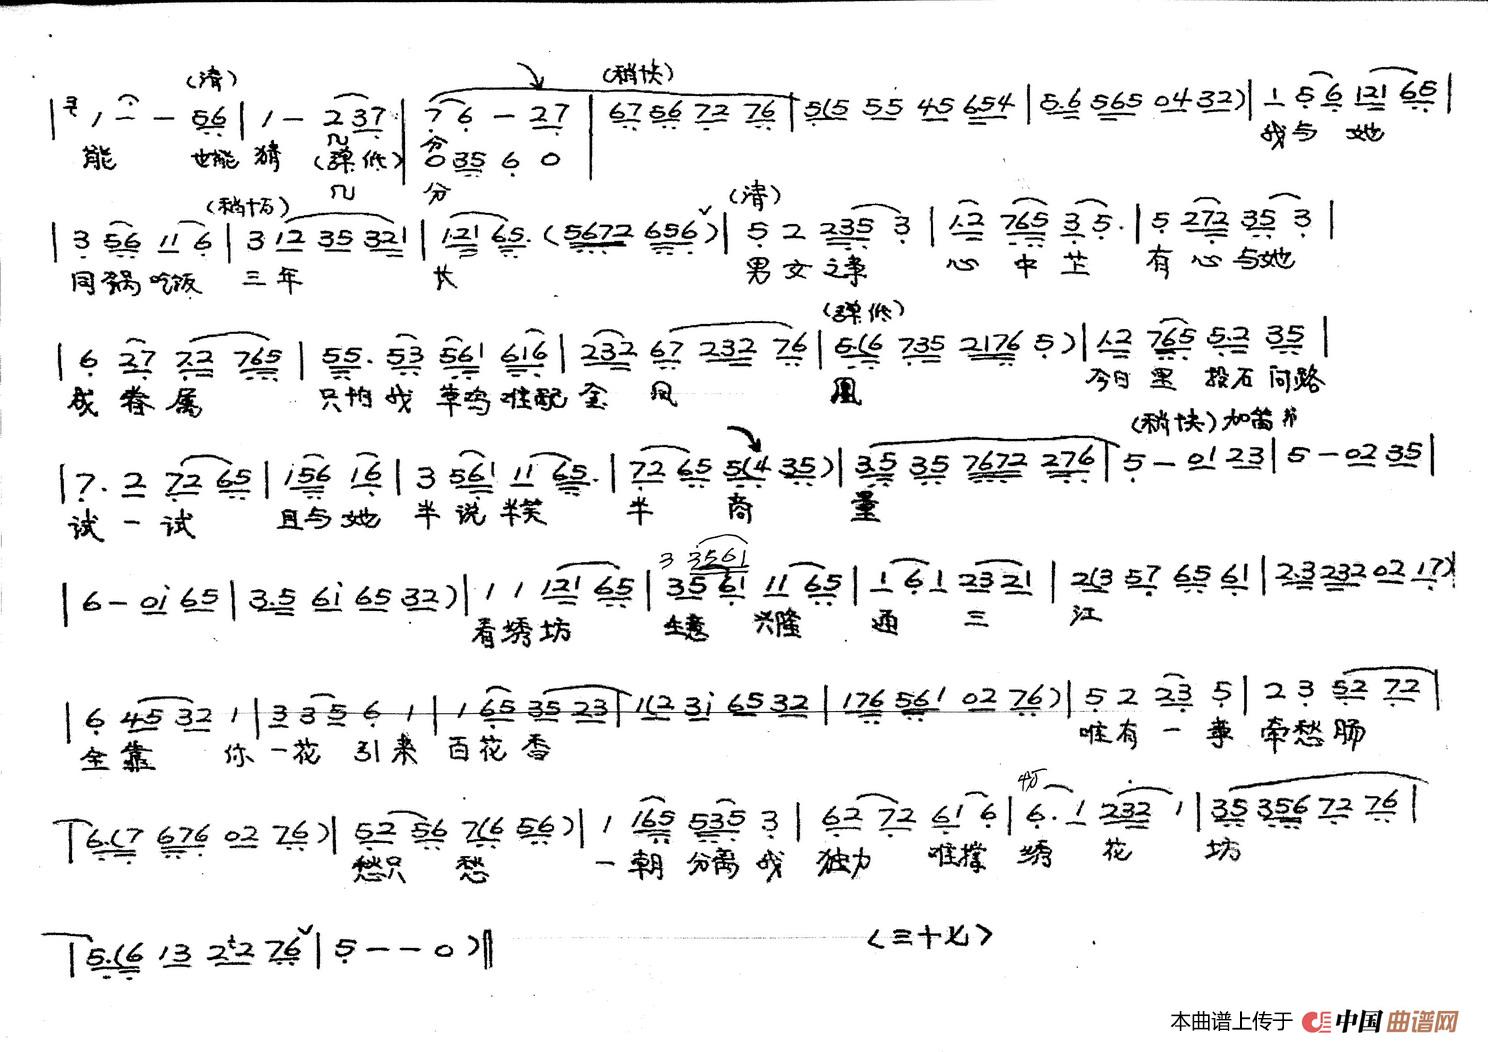 (清) (稍快)
| サ 1 - - 56 | 1 - 2 37 | 7 6 - 27 | 67 56 72 76 | 5(5 55 45 654 | 5.6 565 04 32) | 1 56 121 65 |
能 也能 猜 几 分 我与 她
(弹低) 0 35 6 0
几 分
(稍加) (清)
| 3 56 11 6 | 3 12 35 321 | 121 65. (5672 656) | 5 2 235 3 | 1.2 765 3 5. | 5 272 35 3 |
同锅 吃饭 三年 长 男女之事 心 中 有 心 与她
(弹低)
| 6 27 72 765 | 55. 53 561 616 | 232 67 232 76 | 5.(6 735 2176 5) | 1.2 765 5.2 35 |
成眷属 只怕我 草鸡难配 金 凤 凰 今日里 投石问路
(稍快) 加笛
| 7. 2 72 65 | 156 16 | 3 561 11 65. | 72 65 5(4 35) | 3.5 35 7672 276 | 5 - 01 23 | 5 - 02 35 |
试一试 且与她 半说半笑 半 商 量
3 3561
| 6 - 0i 65 | 3.5 6i 65 32) | 1 1 121 65 | 35 61 11 65 | 1 6 1 23 21 | 2(3 57 65 61 | 2.3 232 02 17) |
看绣坊 生意 兴隆 通 三 江
| 6 45 32 1 | 3 35 6 1 | 1 65 35 23 | 1(2 3i 65 32 | 176 561 02 76) | 5 2 23 5 | 2 3 52 72 |
全靠 你一花 引来 百花香 唯有一事 牵愁肠
| 6.(7 676 02 76) | 52 56 7(6 56) | 1 165 535 3 | 62 72 61 6 | 6. 1 232 1 | 35 356 72 76 |
愁只 愁 一朝 分离我 独力 难撑 绣 花 坊
| 5.(6 13 2 2 76 | 5 - - 0) ‖ <三十七>
本曲谱上传于 中国曲谱网